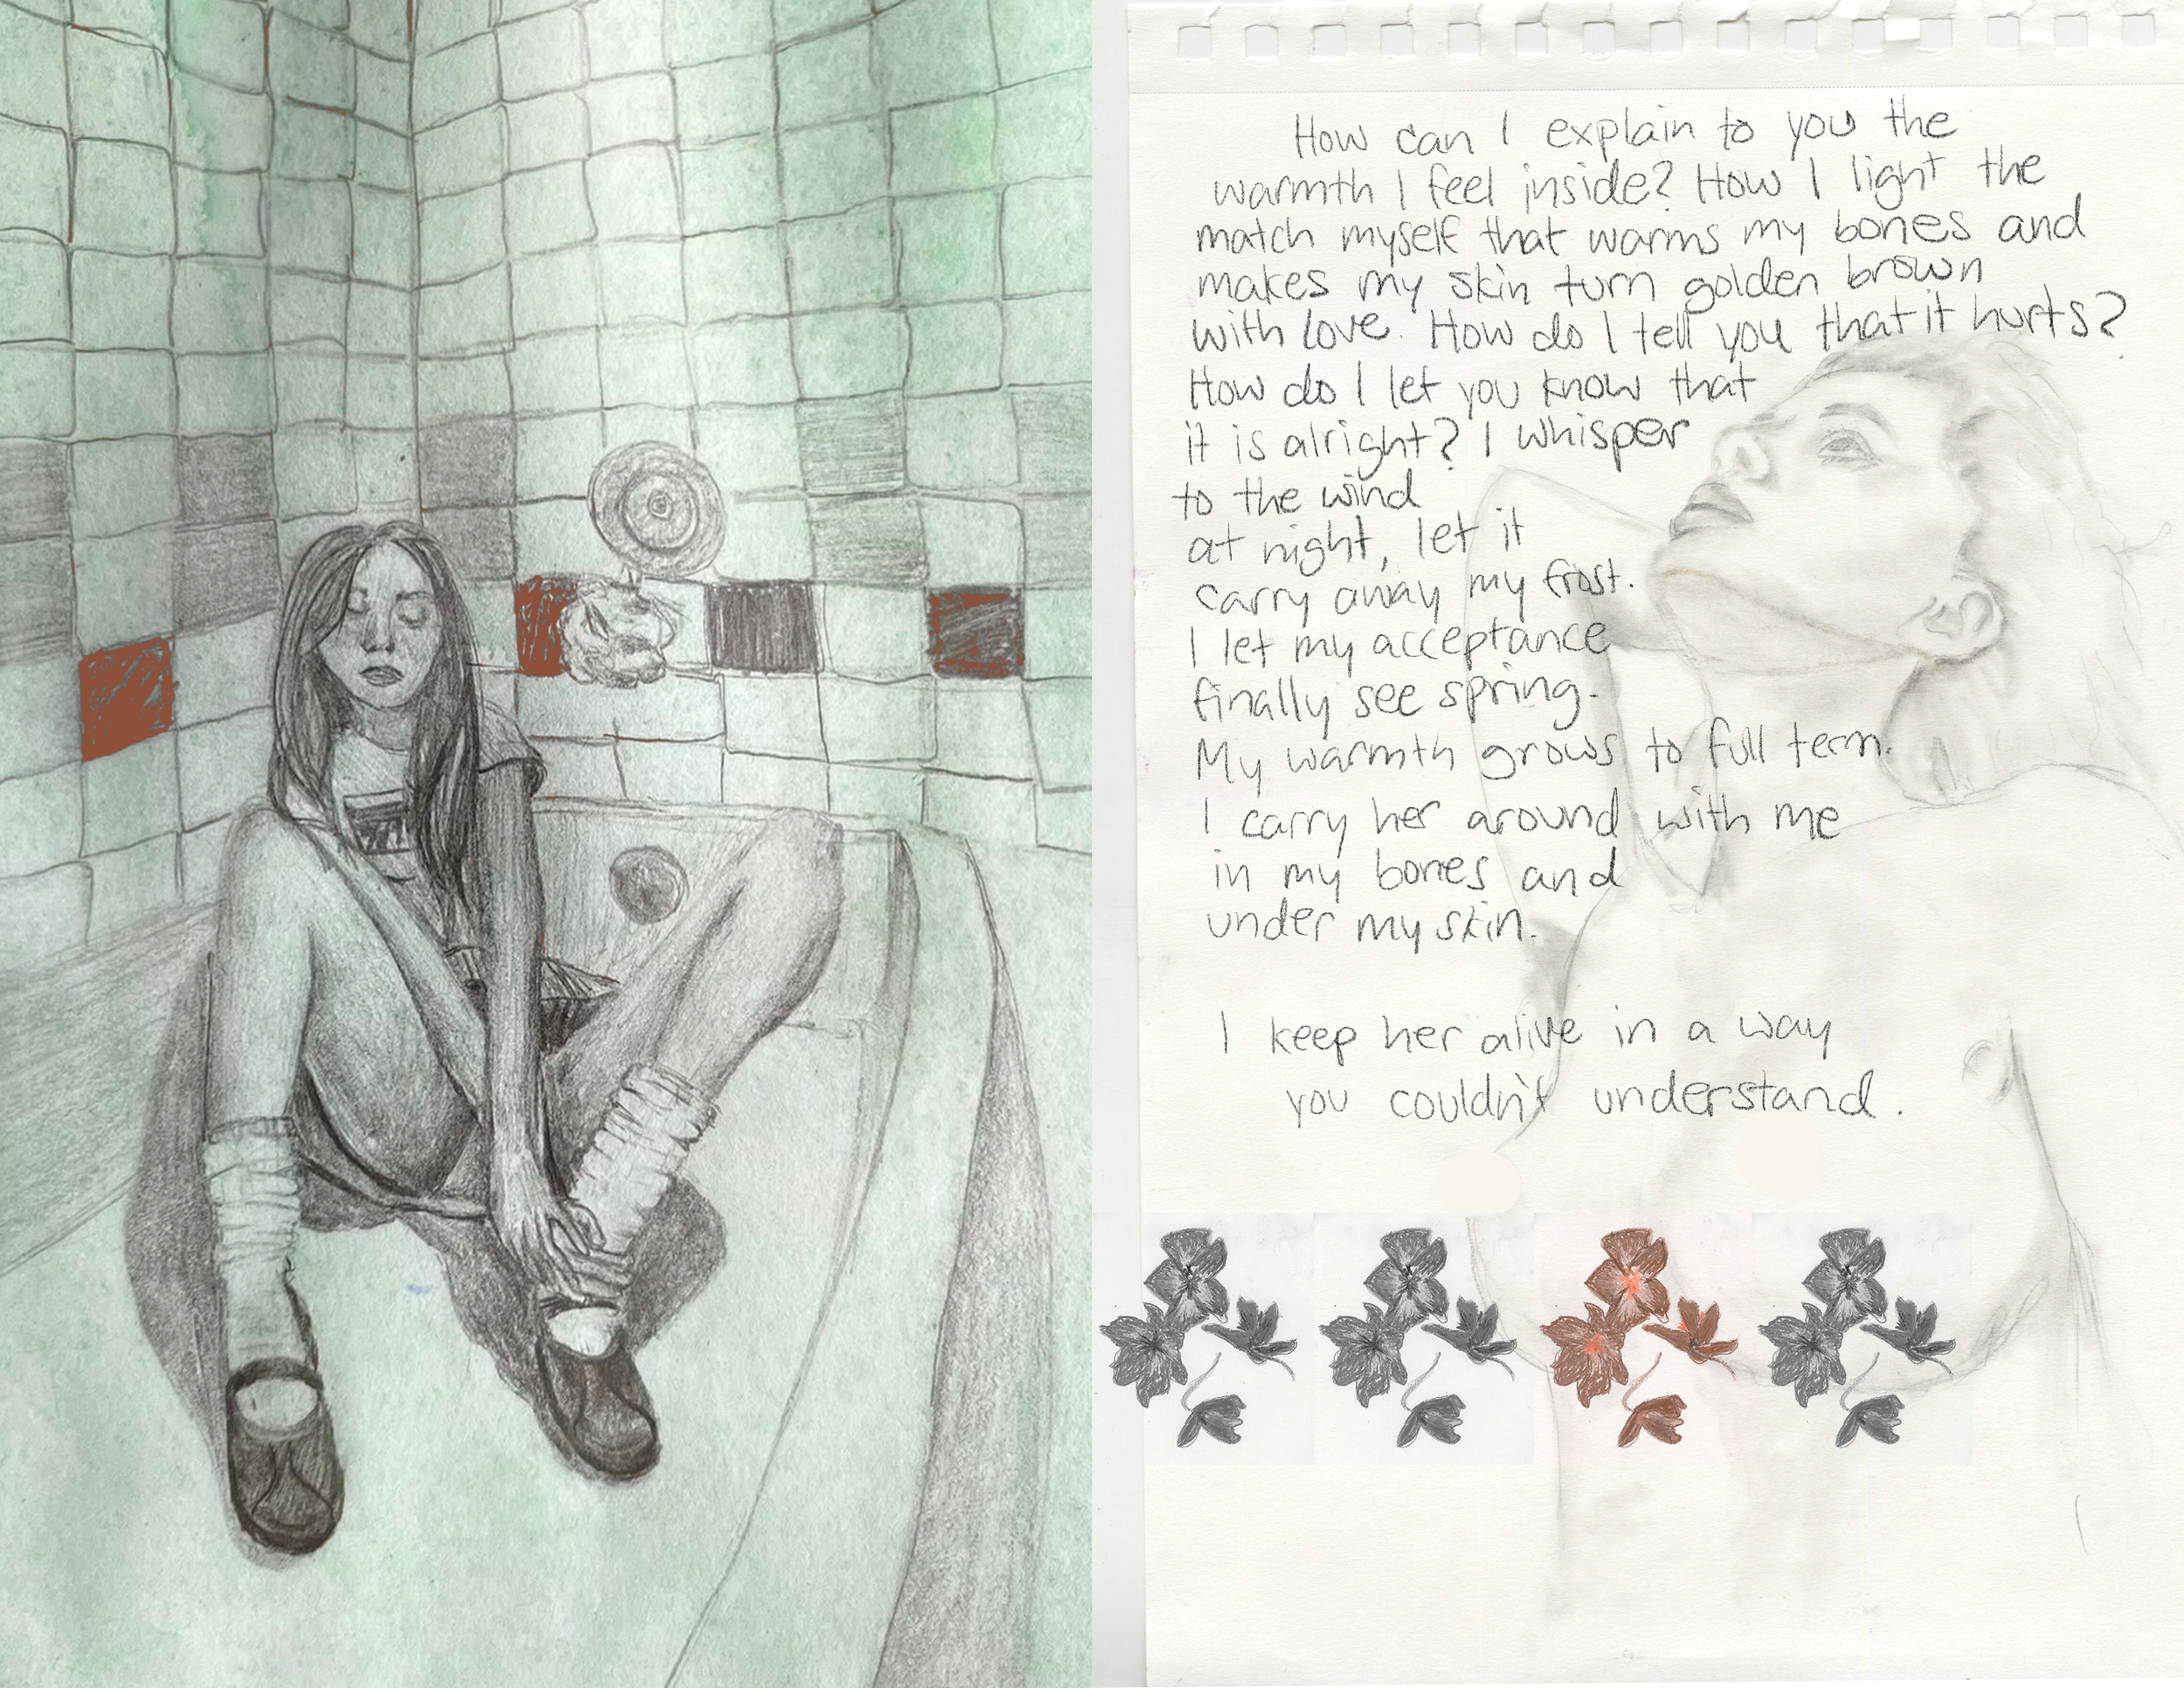 How can I explain to you the
warmth I feel inside? How I light the
match myself that warms my bones and
makes my skin turn golden brown
with love. How do I tell you that it hurts?
How do I let you know that
it is alright? I whisper
to the wind
at night, let it
carry away my frost.
I let my acceptance
finally see spring.
My warmth grows to full term.
I carry her around with me
in my bones and
under my skin.
I keep her alive in a way
you couldn't understand.